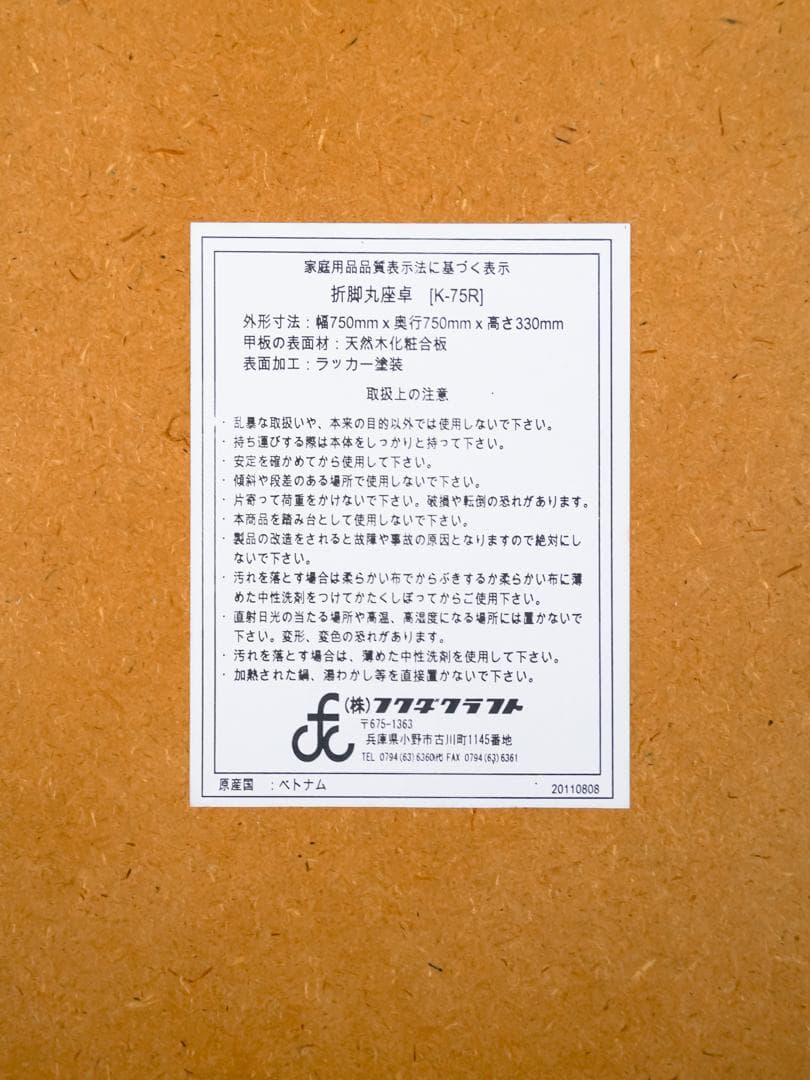 家庭用品品質表示法に基づく表示
折脚丸座卓 [K-75R]
外形寸法：幅750mm x 奥行750mm x 高さ330mm
甲板の表面材：天然木化粧合板
表面加工：ラッカー塗装
取扱上の注意
・乱暴な取扱いや、本来の目的以外では使用しないで下さい。
・持ち運びする際は本体をしっかりと持って下さい。
・安定を確かめてから使用して下さい。
・傾斜や段差のある場所で使用しないで下さい。
・片寄って荷重をかけないで下さい。破損や転倒の恐れがあります。
・本商品を踏み台として使用しないで下さい。
・製品の改造をされると故障や事故の原因となりますので絶対にし
ないで下さい。
・汚れを落とす場合は柔らかい布でからぶきするか柔らかい布に薄
めた中性洗剤をつけてかたくしぼってからご使用下さい。
・直射日光の当たる場所や高温、高湿度になる場所には置かないで
下さい。変形、変色の恐れがあります。
・汚れを落とす場合は、薄めた中性洗剤を使用して下さい。
・加熱された鍋、湯わかし等を直接置かないで下さい。
(株)フクダクラフト
〒675-1363
兵庫県小野市古川町1145番地
TEL 0794(63)6360㈹ FAX 0794(63)6361
原産国 ：ベトナム
20110808